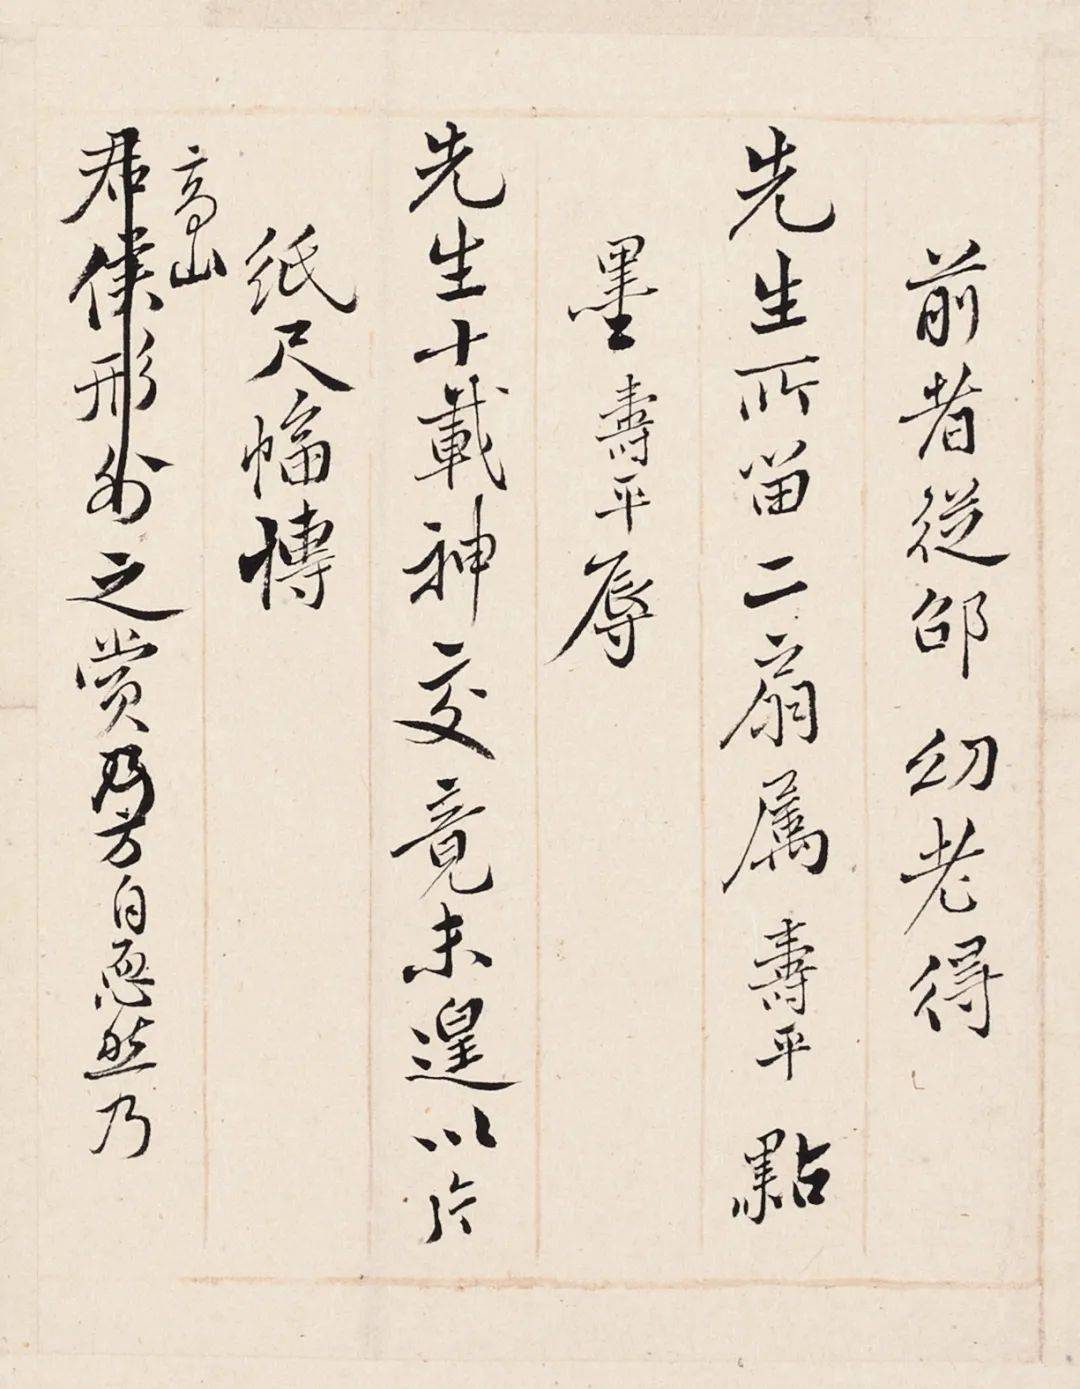 前者從邵幼老得
先生所留二扇屬壽平點
墨壽平辱
先生十載神交竟未遑以片
紙尺幅博
高山
君侯形外之賞乃方自恧然乃